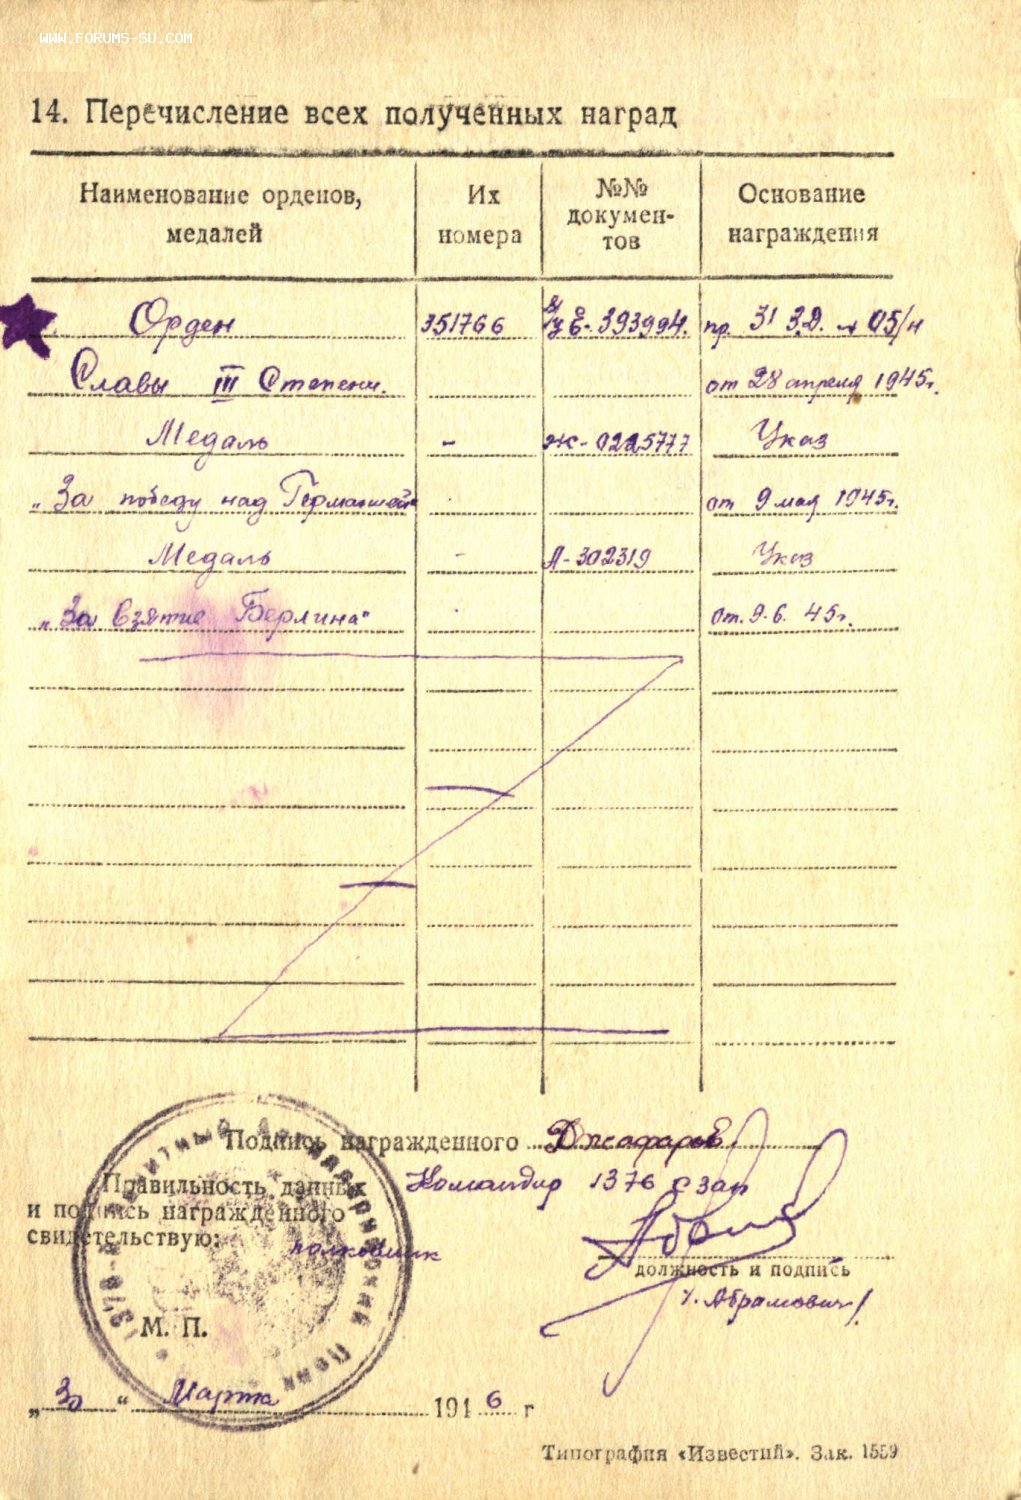 WWW.FORUMS-SU.COM
14. Перечисление всех полученных наград
Наименование орденов, медалей
Их номера
№№ докумен-тов
Основание награждения
Орден 351766 393994. пр. 31 З.Д. 05/н
Славы III Степени. от 28 апреля 1945г.
Медаль - Ж-0225777 Указ
„За победу над Германией“ от 9 мая 1945г.
Медаль - А-302319 Указ
„За Взятие Берлина“ от. 9.6. 45г.
Подпись награжденного Джафаров
Правильность данных Командир 1376 с зап
и подпись награжденного
свидетельствую: полковник
должность и подпись
/. Абрамович/
М. П.
„30“ Марта 1946 г
Типография «Известий». Зак. 1559